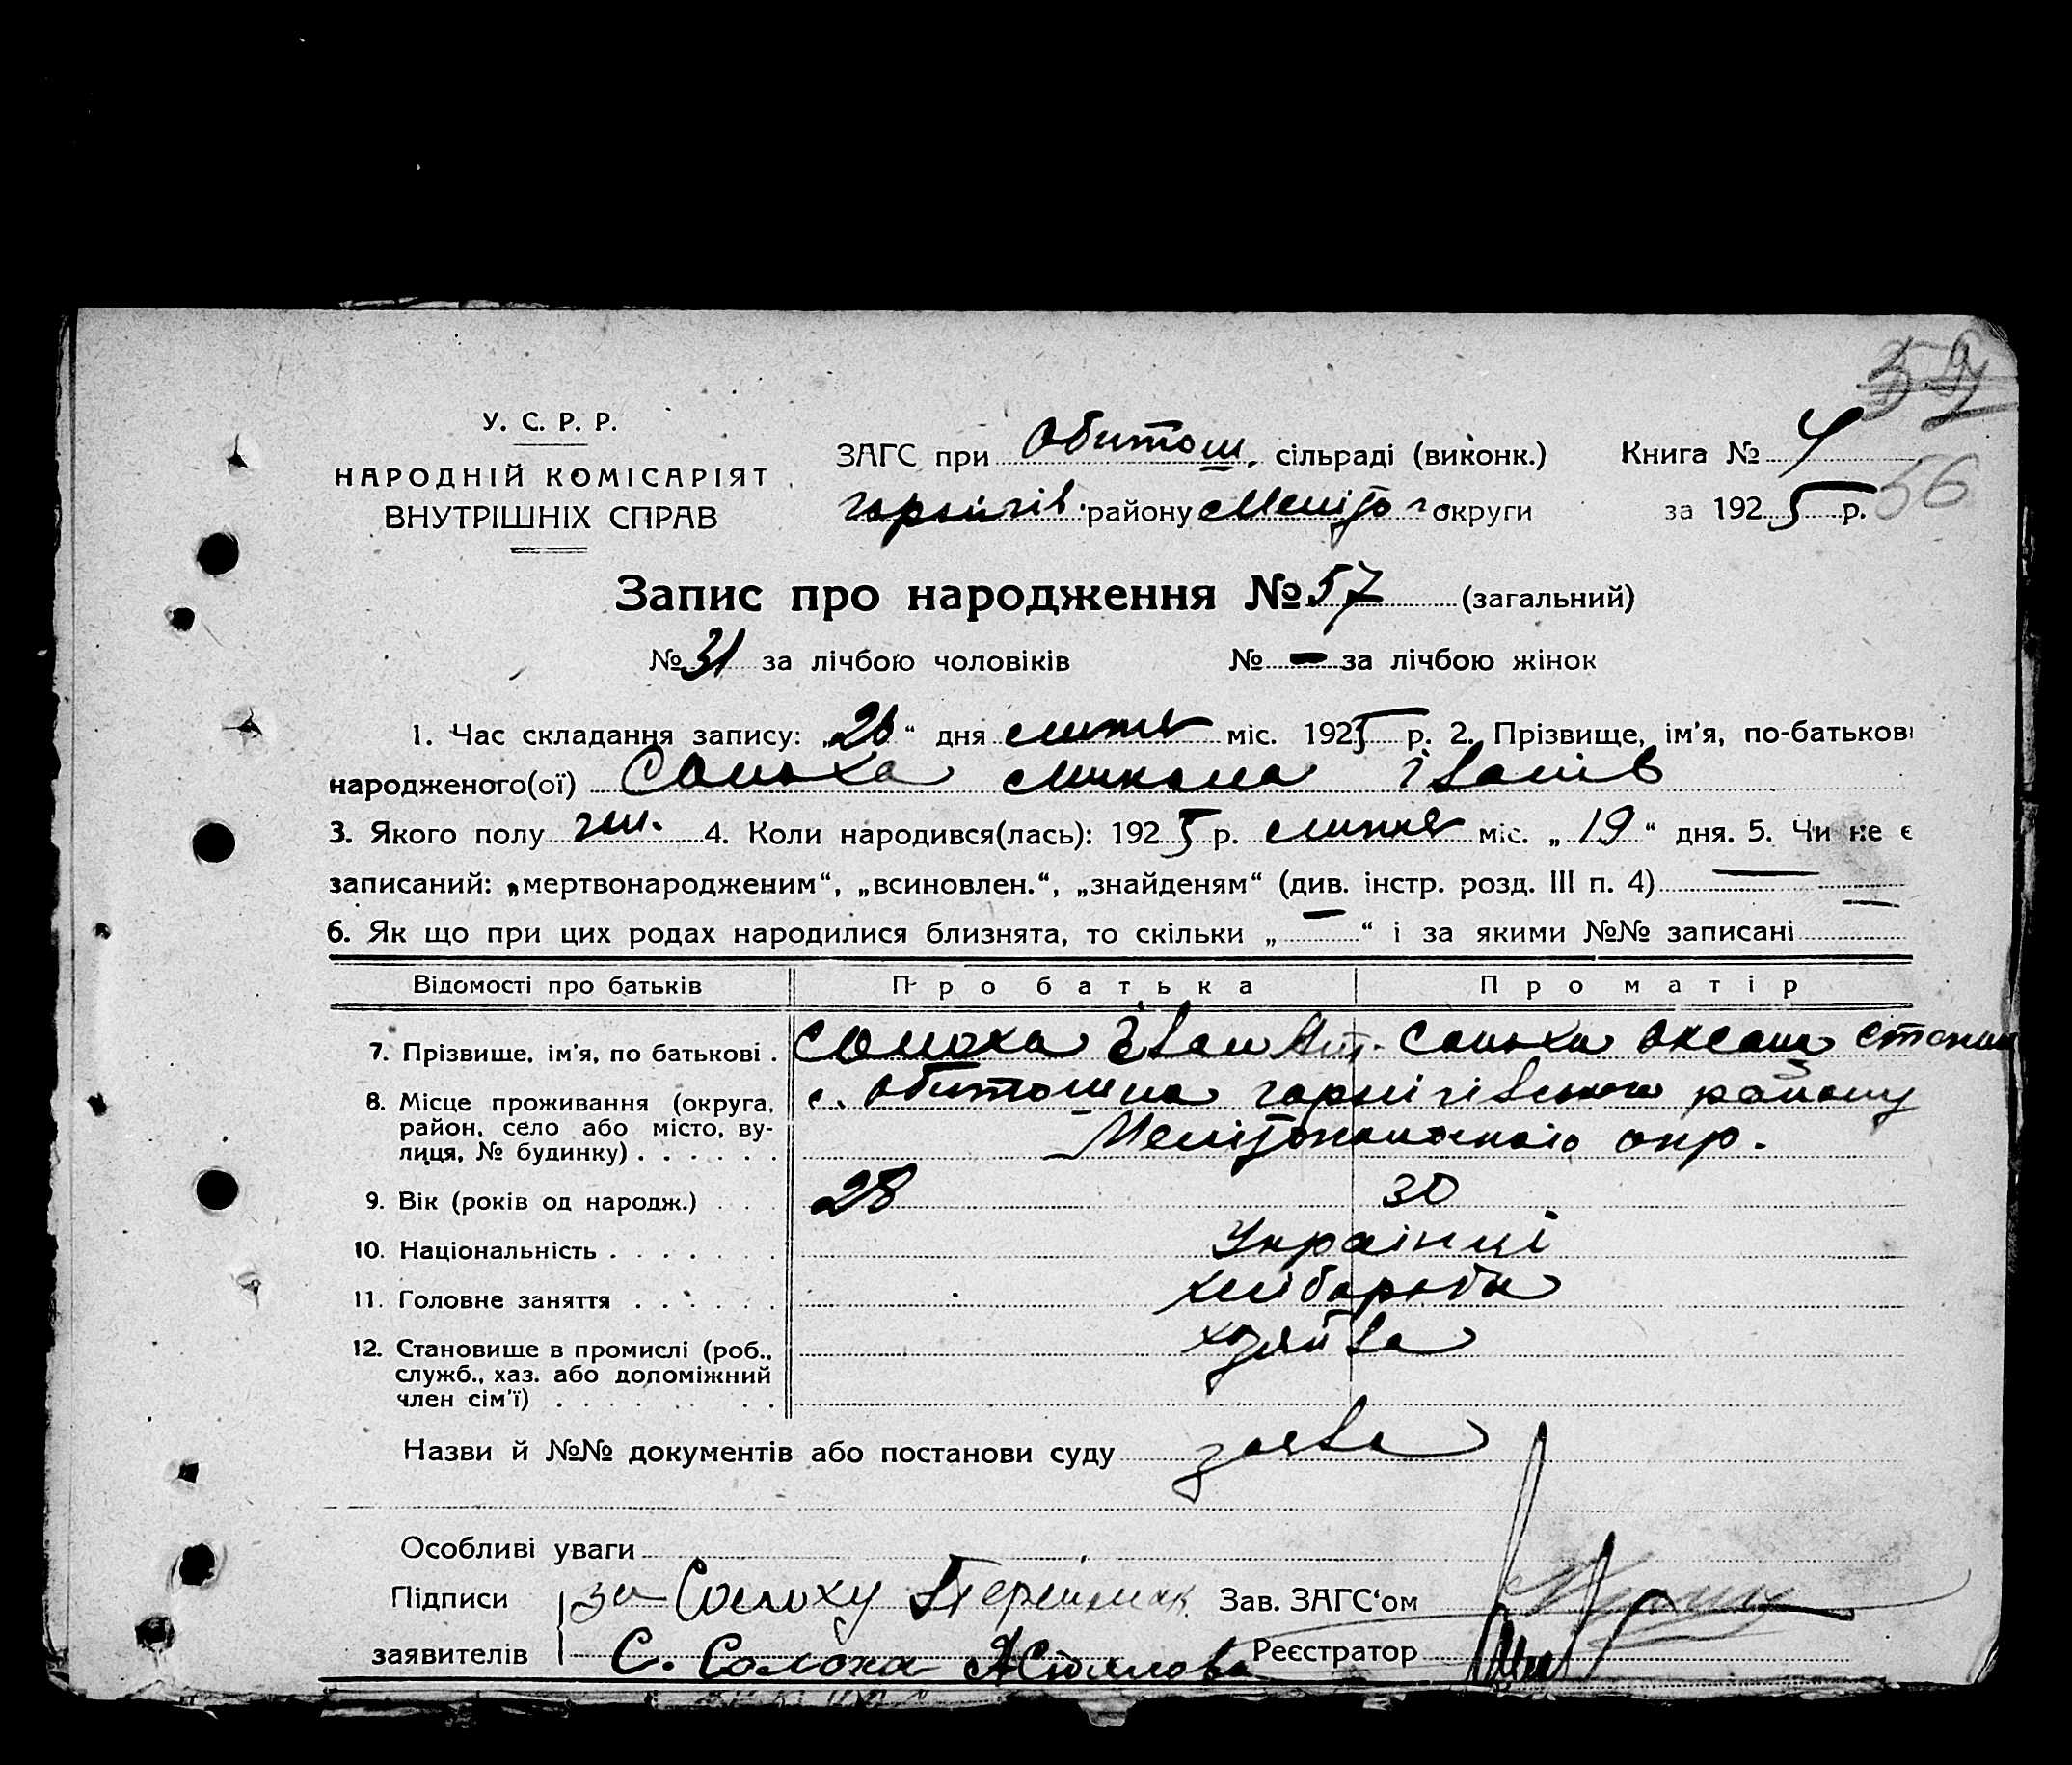 56
У. С. Р. Р.
НАРОДНІЙ КОМІСАРІЯТ
ВНУТРІШНІХ СПРАВ
ЗАГС при Обитош. сільраді (виконк.)
району Меліто округи
Книга № 4
за 1925 р.
Запис про народження № 57 (загальний)
№ 31 за лічбою чоловіків № — за лічбою жінок
1. Час складання запису: „26“ дня липня міс. 1925 р. 2. Прізвище, ім'я, по-батькові
народженого(ої) Солоха Микола Іванів
3. Якого полу чол. 4. Коли народився(лась): 1925 р. липня міс. „19“ дня. 5. Чи не є
записаний: „мертвонародженим“, „всиновлен.“, „знайденям“ (див. інстр. розд. III п. 4) —
6. Як що при цих родах народилися близнята, то скільки „—“ і за якими №№ записані —
Відомості про батьків Про батька Про матір
7. Прізвище, ім'я, по батькові . Солоха Іван Солоха Оксана Степан
8. Місце проживання (округа, район, село або місто, вулиця, № будинку) . . . . . . с. Обиточна району
окр.
9. Вік (років од народж.) . . . 28 30
10. Національність . . . . . . Українці
11. Головне заняття . . . . . . хліборобы
12. Становище в промислі (роб., служб., хаз. або допоміжний член сім'ї) . . . . . . . . хозяйва
Назви й №№ документів або постанови суду заява
Особливі уваги
Підписи за Солоху Зав. ЗАГС'ом
заявителів С. Солоха Реєстратор